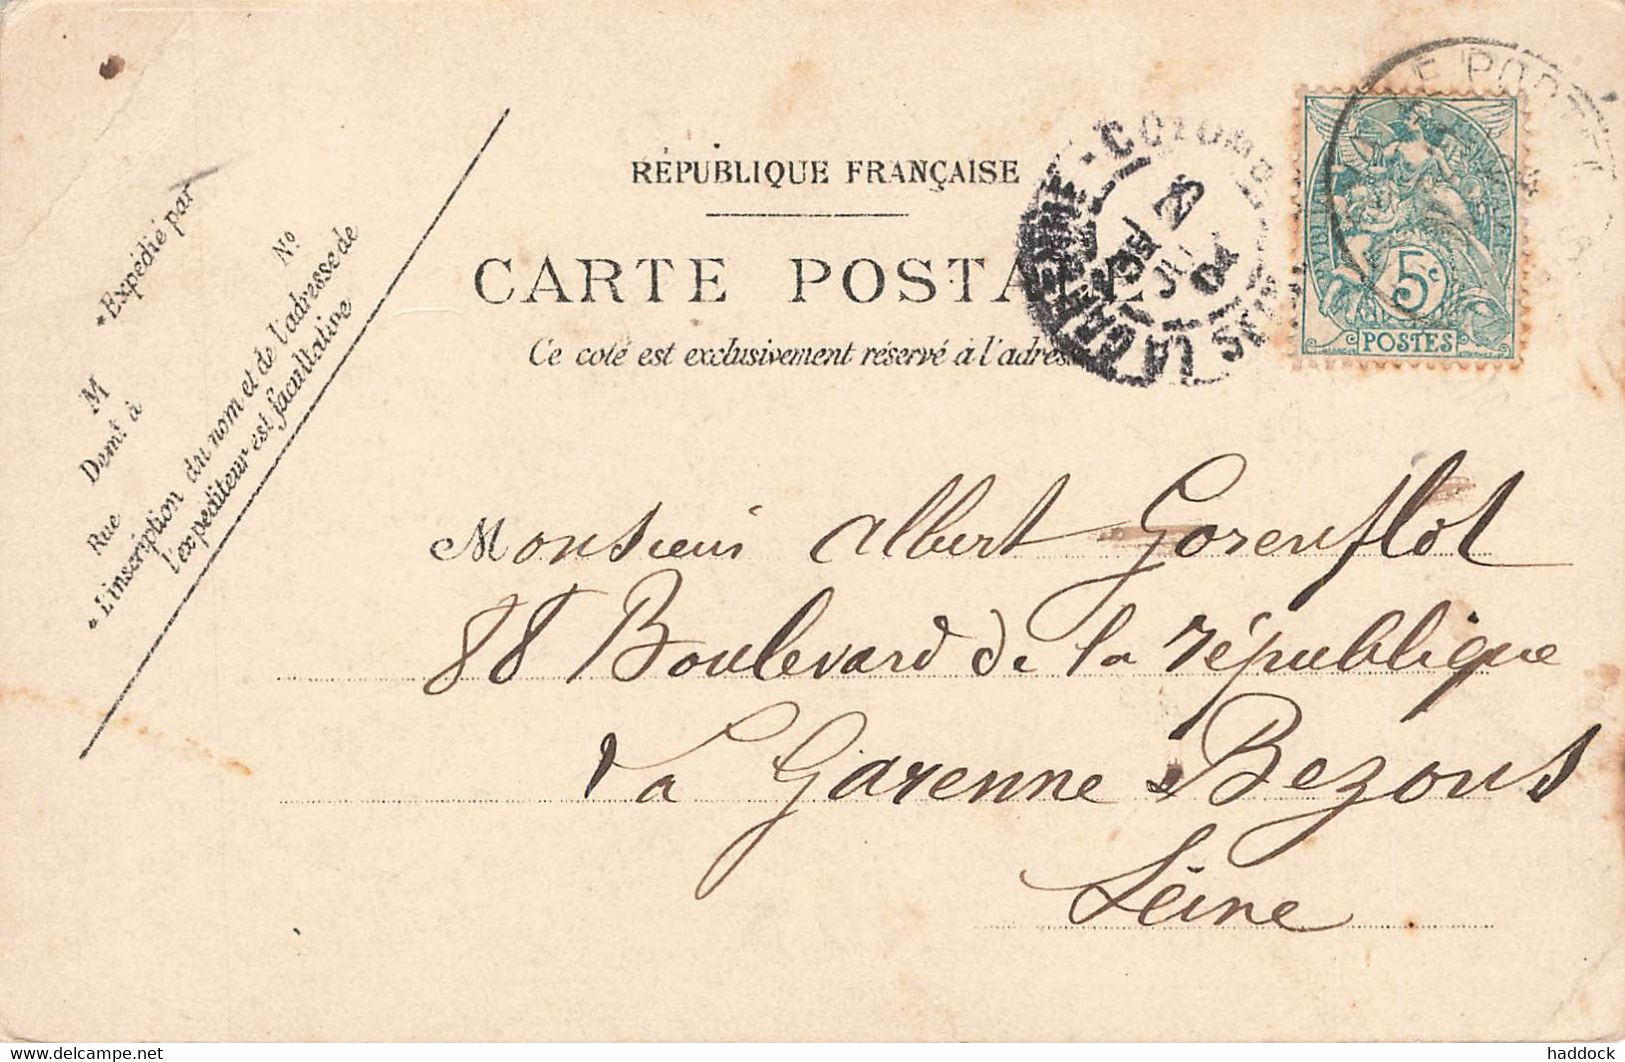 RÉPUBLIQUE FRANÇAISE
CARTE POSTALE
Ce coté est exclusivement réservé à l'adresse
* Expédié par
M
N°
Demt à
Rue
* L'inscription du nom et de l'adresse de
l'expéditeur est facultative
LA GARENNE - COLOMBES
SEINE
04
LE PORTEL
5c
POSTES
Monsieur Albert Gorenflot
88 Boulevard de la république
La Garenne Bezons
Seine
delcampe.net
haddock